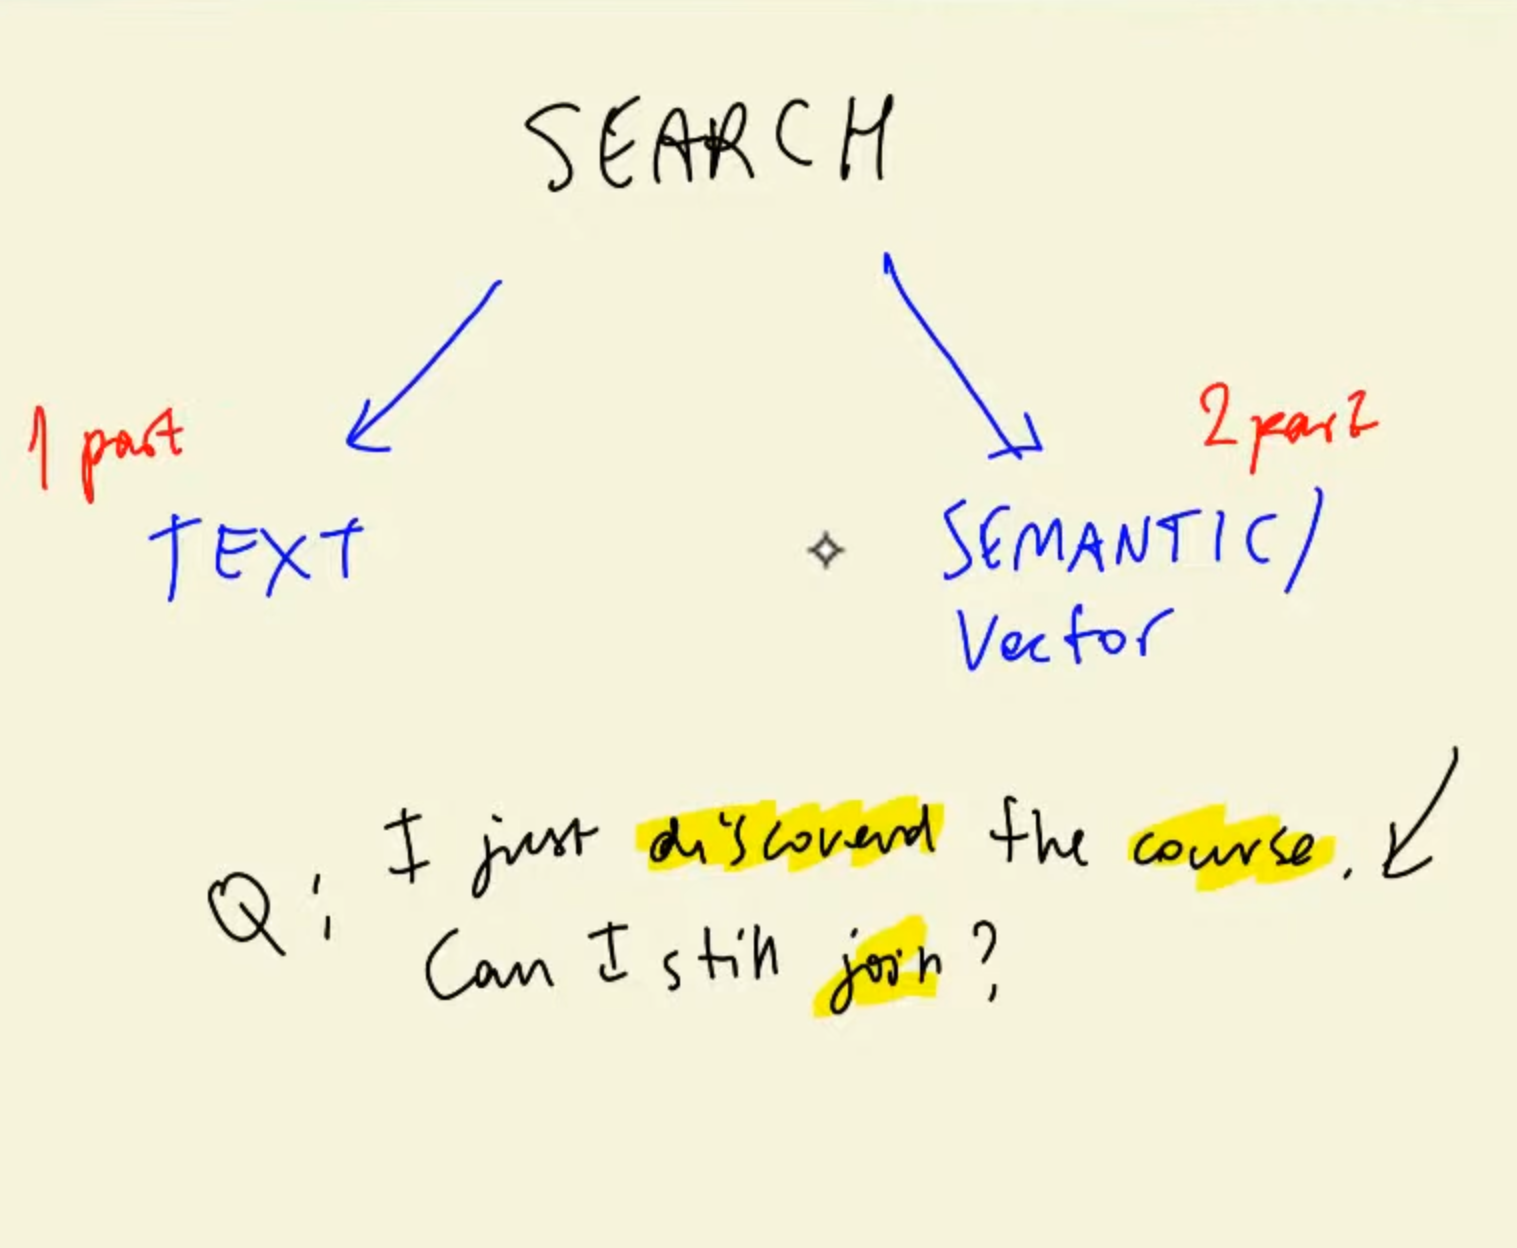 SEARCH
1 part
2 part
TEXT
SEMANTIC/
Vector
I just discoverd the course.
Q:
Can I still join?